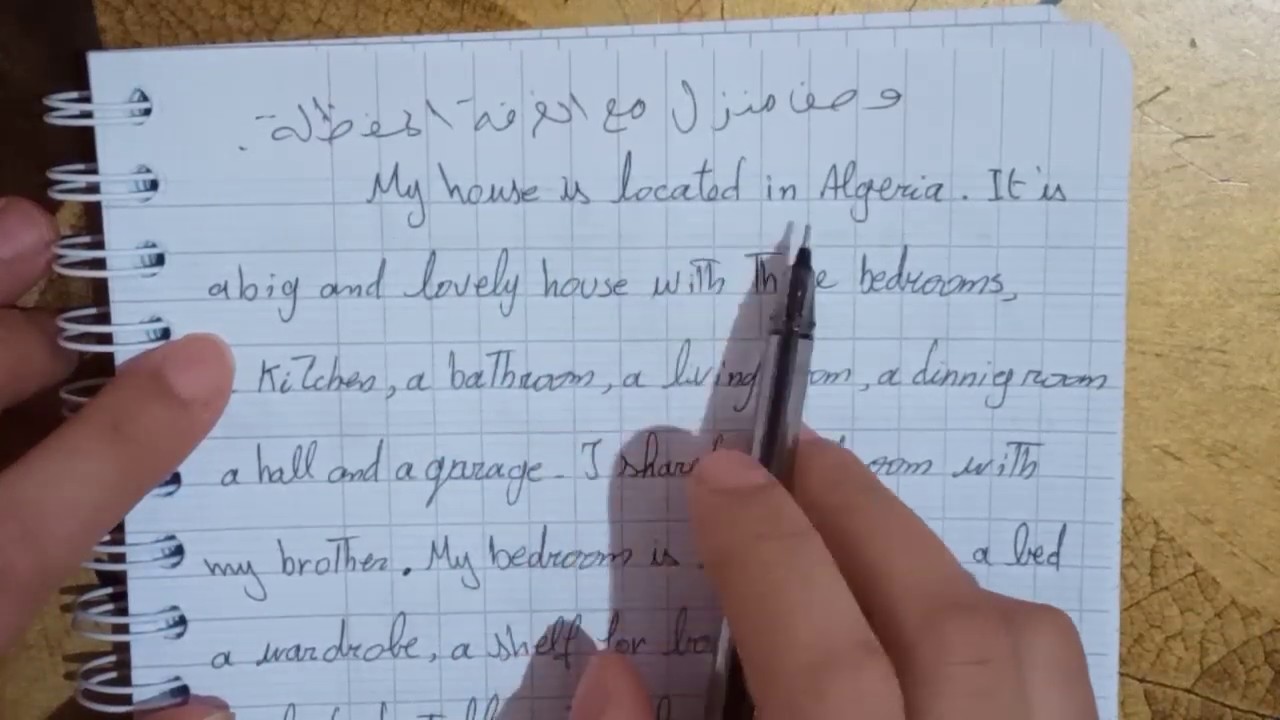 وصف منزل مع الغرفة المفضلة.
My house is located in Algeria. It is
a big and lovely house with bedrooms,
Kitchen, a bathroom, a living, a dinnig room
a hall and a garage. I with
my brother. My bedroom is a bed
a wardrobe, a shelf for